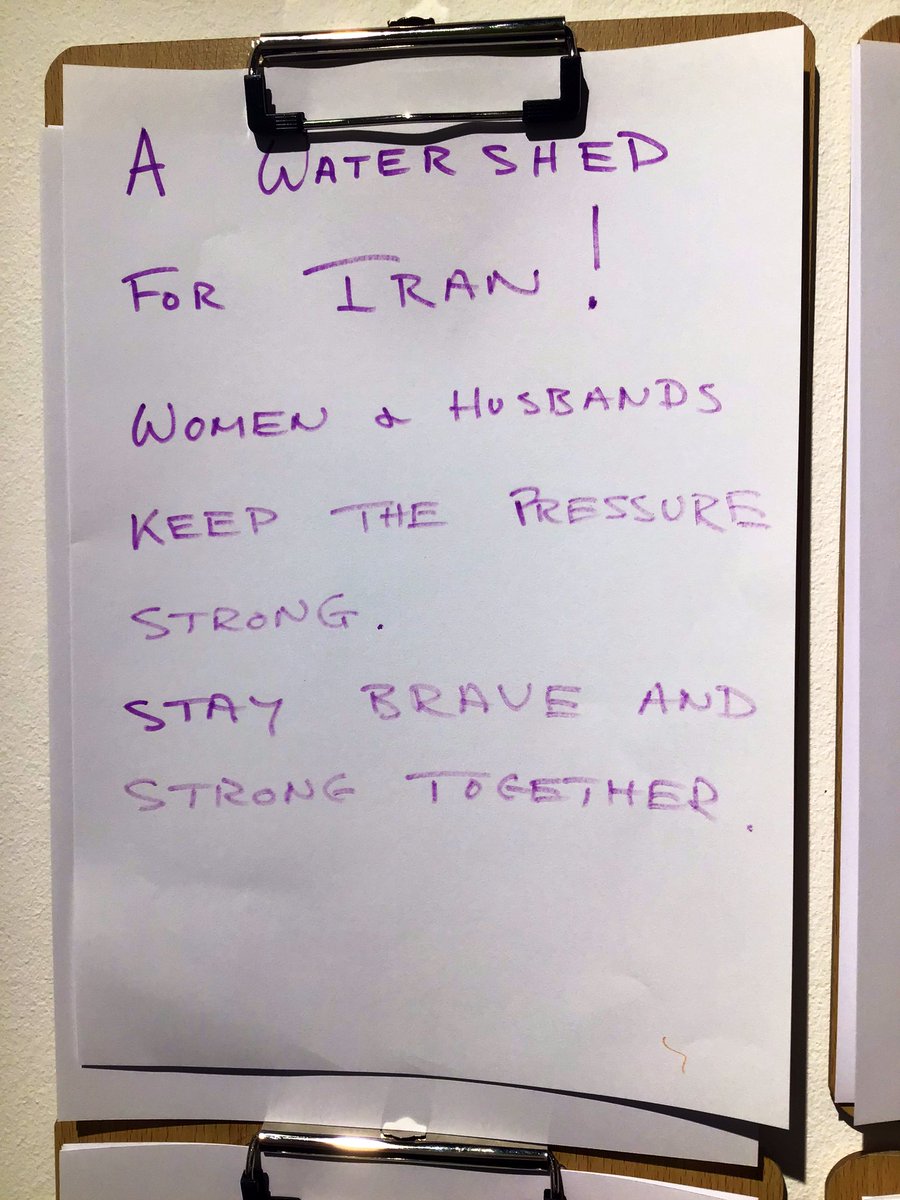 A WATERSHED
FOR IRAN!
WOMEN & HUSBANDS
KEEP THE PRESSURE
STRONG.
STAY BRAVE AND
STRONG TOGETHER.